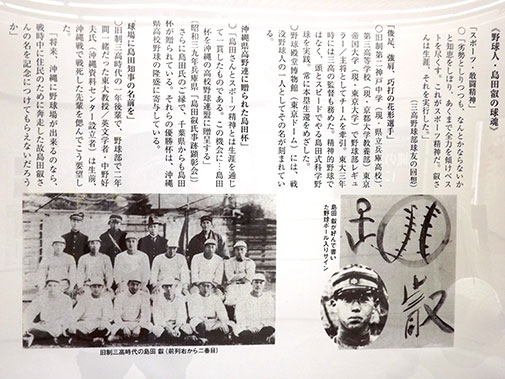 《野球人・島田叡の球魂》
「スポーツ・敢闘精神」
〇「劣勢としりつつも、なんとかならないか
と知恵をしぼり、あくまでも全力を傾けてベス
トを尽くす。これがスポーツ精神だ。叡さ
んは生涯、それを実行した。」
(三高野球部球友の回想)
『俊足、強肩、巧打の花形選手』
〇旧制第二神戸中学(現・県立兵庫高校)、
第三高等学校(現・京都大学教養部)、東京
帝国大学(現・東京大学)で野球部レギュ
ラー/主将としてチームを牽引。東大三年
時には三高の監督も務めた。精神的野球で
はなく、頭とスピードでやる島田式科学野
球を実践、常に
〇野球殿堂博物館(東京ドーム)には、戦
没野球人の一人としてその名が刻まれてい
る。
沖縄県高野連に贈られた島田杯
〇「島田さんとスポーツ精神とは生涯を通じ
て一貫したものである。この機会に…島田
杯を沖縄の高校野球連盟に贈呈する」
〔昭和三九年兵庫県「島田叡氏事跡顕彰会〕
さらに島田氏のご縁で、千葉県からも島田
杯が贈られている。それらの優勝杯は、沖縄
県高校野球の隆盛に寄与している。
球場に島田知事の名前を
〇旧制三高時代の一年後輩で、野球部で二年
間一緒だった東大教授/英文学者・中野好
夫氏(沖縄資料センター設立者)は生前、
沖縄戦で戦死した先輩を偲んでこう要望し
た。
「将来、沖縄に野球場が出来るのなら、
戦時中に住民のために奔走した故島田叡さ
んの名を記念につけてもらえないだろう
か」
島田 叡が好んで書い
た野球ボール入りサイン
叡
旧制三高時代の島田 叡(前列右から二番目)